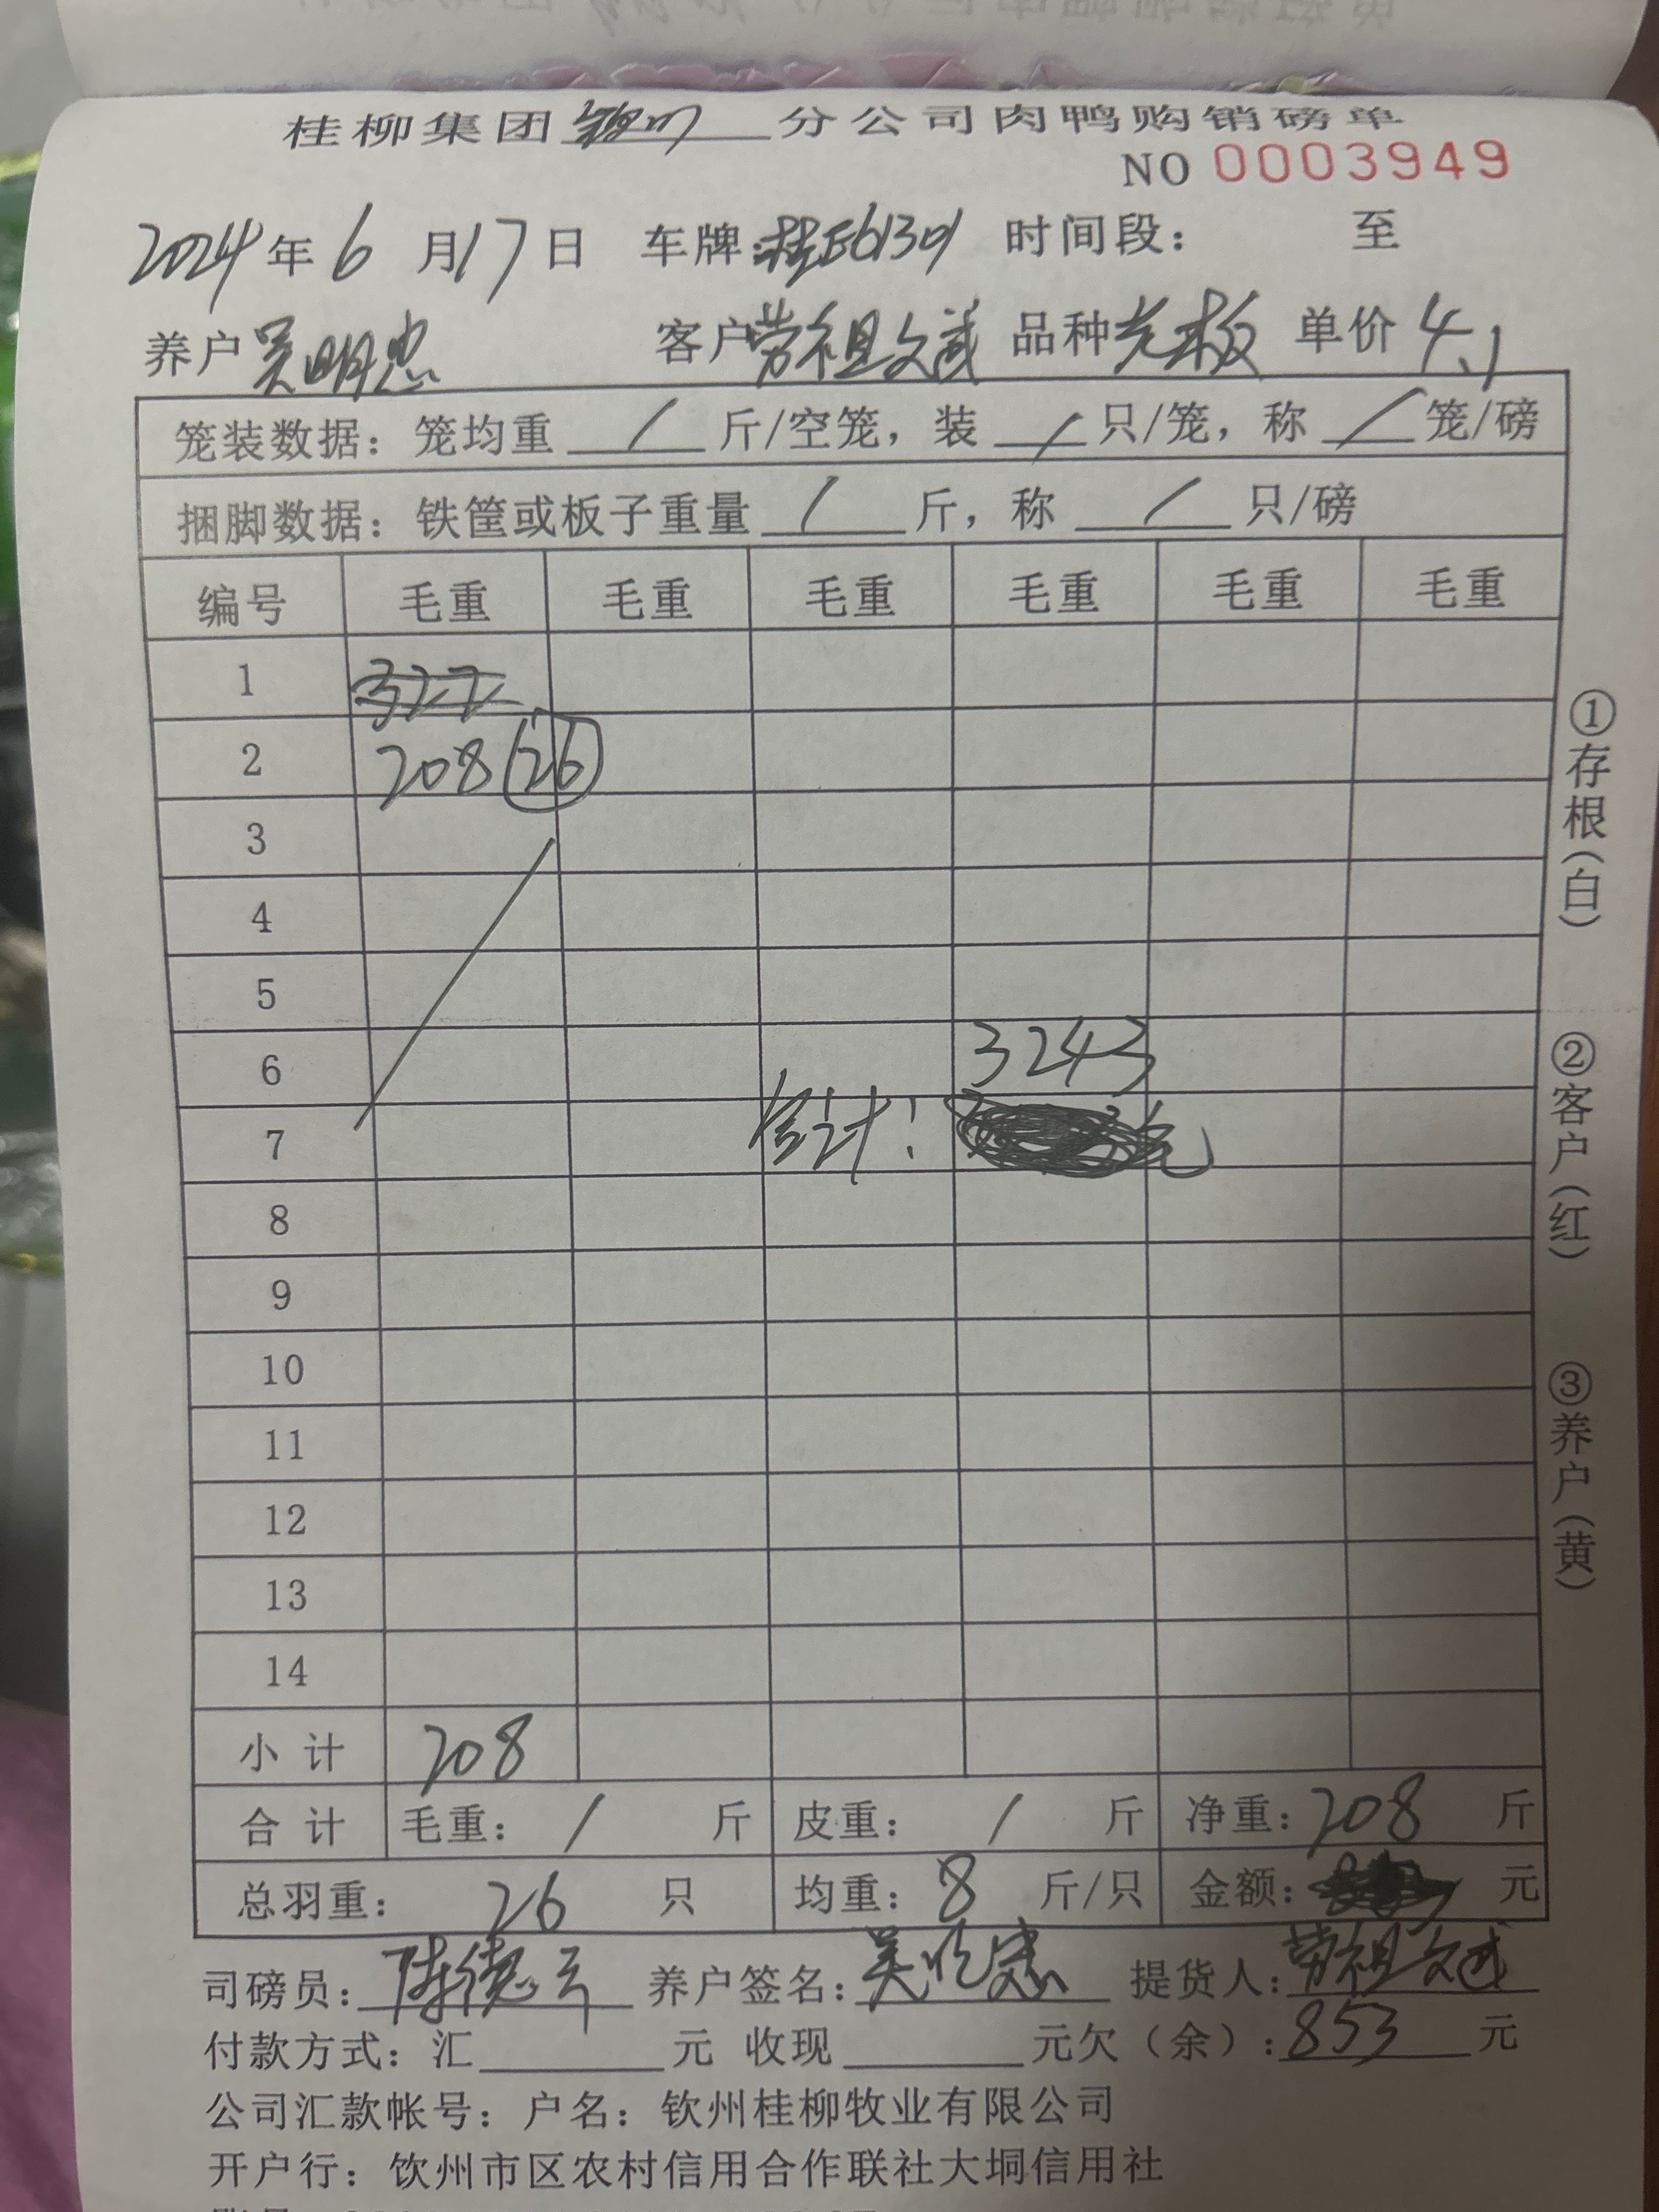 桂柳集团钦州分公司肉鸭购销磅单
NO 0003949
2024年6月17日 车牌:桂E61301 时间段: 至
养户吴明忠 客户劳祖文武 品种光板 单价4.1
笼装数据：笼均重 / 斤/空笼，装 / 只/笼，称 / 笼/磅
捆脚数据：铁筐或板子重量 / 斤，称 / 只/磅
编号 毛重 毛重 毛重 毛重 毛重 毛重
1 377
2 208 (26)
3
4
5
6 3243
7 合计: 元
8
9
10
11
12
13
14
小计 208
合计 毛重: / 斤 皮重: / 斤 净重:208 斤
总羽重: 26 只 均重: 8 斤/只 金额: 元
司磅员:陈德云 养户签名:吴明忠 提货人:劳祖文武
付款方式：汇 元 收现 元欠（余）:853 元
公司汇款帐号：户名：钦州桂柳牧业有限公司
开户行：钦州市区农村信用合作联社大垌信用社
①存根（白）
②客户（红）
③养户（黄）